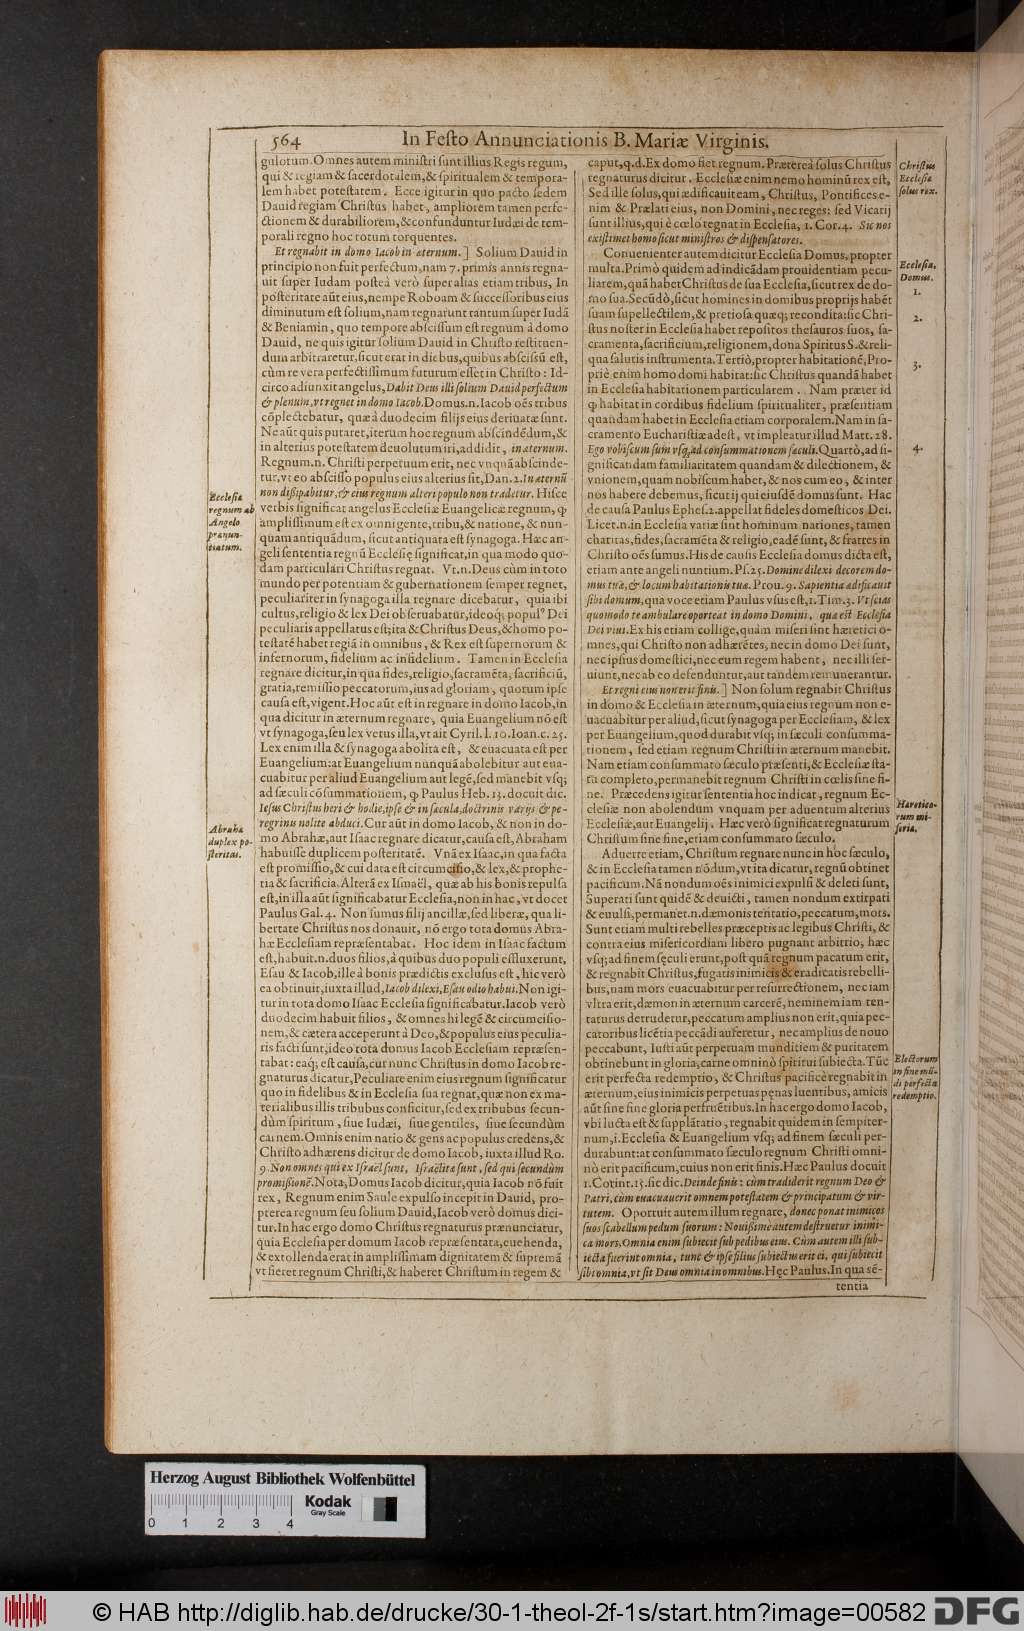 564
In Feſto Annunciationis B. Mariæ Virginis.
gulorum. Omnes autem miniſtri ſunt illius Regis regum,
qui & regiam & ſacerdotalem, & ſpiritualem & tempora-
lem habet poteſtatem. Ecce igitur in quo pacto ſedem
Dauid regiam Chriſtus habet, ampliorem tamen perfe-
ctionem & durabiliorem, & confunduntur Iudæi de tem-
porali regno hoc totum torquentes.
Et regnabit in domo Iacob in æternum. ] Solium Dauid in
principio non fuit perfectum, nam 7. primis annis regna-
uit ſuper Iudam poſtea verò ſuper alias etiam tribus, In
poſteritate aūt eius, nempe Roboam & ſucceſſoribus eius
diminutum eſt ſolium, nam regnarunt tantum ſuper Iudā
& Beniamin, quo tempore abſciſſum eſt regnum à domo
Dauid, ne quis igitur ſolium Dauid in Chriſto reſtituen-
dum arbitraretur, ſicut erat in diebus, quibus abſciſsū eſt,
cùm re vera perfectiſſimum futurum eſſet in Chriſto: Id-
circo adiunxit angelus, Dabit Deus illi ſolium Dauid perfectum
& plenum, vt regnet in domo Iacob. Domus.n. Iacob oēs tribus
cōplectebatur, quæ à duodecim filijs eius deriuatæ ſunt.
Ne aūt quis putaret, iterum hoc regnum abſcindēdum, &
in alterius poteſtatem deuolutum iri, addidit, in æternum.
Regnum.n. Chriſti perpetuum erit, nec vnquā abſcinde-
tur, vt eo abſciſſo populus eius alterius ſit, Dan. 2. In æternū
non dißipabitur, & eius regnum alteri populo non tradetur. Hiſce
verbis ſignificat angelus Eccleſiæ Euangelicæ regnum, ꝙ
ampliſſimum eſt ex omni gente, tribu, & natione, & nun-
quam antiquādum, ſicut antiquata eſt ſynagoga. Hæc an-
geli ſententia regnū Eccleſię ſignificat, in qua modo quo-
dam particulari Chriſtus regnat. Vt.n. Deus cùm in toto
mundo per potentiam & gubernationem ſemper regnet,
peculiariter in ſynagoga illa regnare dicebatur, quia ibi
cultus, religio & lex Dei obſeruabatur, ideoq; popul⁹ Dei
peculiaris appellatus eſt; ita & Chriſtus Deus, & homo po-
teſtatē habet regiā in omnibus, & Rex eſt ſupernorum &
infernorum, fidelium ac infidelium. Tamen in Eccleſia
regnare dicitur, in qua fides, religio, ſacramēta, ſacrificiū,
gratia, remiſſio peccatorum, ius ad gloriam, quorum ipſe
cauſa eſt, vigent. Hoc aūt eſt in regnare in domo Iacob, in
qua dicitur in æternum regnare, quia Euangelium nō eſt
vt ſynagoga, ſeu lex vetus illa, vt ait Cyril. l. 10. Ioan. c. 25.
Lex enim illa & ſynagoga abolita eſt, & euacuata eſt per
Euangelium: at Euangelium nunquā abolebitur aut eua-
cuabitur per aliud Euangelium aut legē, ſed manebit vſq;
ad ſæculi cōſummationem, ꝙ Paulus Heb. 13. docuit dic.
Ieſus Chriſtus heri & hodie, ipſe & in ſæcula, doctrinis varijs & pe-
regrinis nolite abduci. Cur aūt in domo Iacob, & non in do-
mo Abrahæ, aut Iſaac regnare dicatur, cauſa eſt, Abraham
habuiſſe duplicem poſteritatē. Vnā ex Iſaac, in qua facta
eſt promiſſio, & cui data eſt circumciſio, & lex, & prophe-
tia & ſacrificia. Alterā ex Iſmaël, quæ ab his bonis repulſa
eſt, in illa aūt ſignificabatur Eccleſia, non in hac, vt docet
Paulus Gal. 4. Non ſumus filij ancillæ, ſed liberæ, qua li-
bertate Chriſtus nos donauit, nō ergo tota domus Abra-
hæ Eccleſiam repræſentabat. Hoc idem in Iſaac factum
eſt, habuit.n. duos filios, à quibus duo populi effluxerunt,
Eſau & Iacob, ille à bonis prædictis excluſus eſt, hic verò
ea obtinuit, iuxta illud, Iacob dilexi, Eſau odio habui. Non igi-
tur in tota domo Iſaac Eccleſia ſignificabatur. Iacob verò
duodecim habuit filios, & omnes hi legē & circumciſio-
nem, & cætera acceperunt à Deo, & populus eius peculia-
ris facti ſunt, ideo tota domus Iacob Eccleſiam repræſen-
tabat: eaq; eſt cauſa, cur nunc Chriſtus in domo Iacob re-
gnaturus dicatur, Peculiare enim eius regnum ſignificatur
quo in fidelibus & in Eccleſia ſua regnat, quæ non ex ma-
terialibus illis tribubus conficitur, ſed ex tribubus ſecun-
dùm ſpiritum, ſiue Iudæi, ſiue gentiles, ſiue ſecundùm
carnem. Omnis enim natio & gens ac populus credens, &
Chriſto adhærens dicitur de domo Iacob, iuxta illud Ro.
9. Non omnes qui ex Iſraël ſunt, Iſraëlitæ ſunt, ſed qui ſecundùm
promiſionē. Nota, Domus Iacob dicitur, quia Iacob nō fuit
rex, Regnum enim Saule expulſo incepit in Dauid, pro-
pterea regnum ſeu ſolium Dauid, Iacob verò domus dici-
tur. In hac ergo domo Chriſtus regnaturus prænunciatur,
quia Eccleſia per domum Iacob repræſentata, euehenda,
& extollenda erat in ampliſſimam dignitatem & ſupremā
vt fieret regnum Chriſti, & haberet Chriſtum in regem &
Eccleſia
regnum ab
Angelo
prænun-
tiatum.
Abrahæ
duplex po-
ſteritas.
caput, q. d. Ex domo fiet regnum. Præterea ſolus Chriſtus
regnaturus dicitur. Eccleſiæ enim nemo hominū rex eſt,
Sed ille ſolus, qui ædificauit eam, Chriſtus, Pontifices e-
nim & Prælati eius, non Domini, nec reges: ſed Vicarij
ſunt illius, qui è cœlo regnat in Eccleſia, 1. Cor. 4. Sic nos
exiſtimet homo ſicut miniſtros & diſpenſatores.
Conuenienter autem dicitur Eccleſia Domus, propter
multa. Primò quidem ad indicādam prouidentiam pecu-
liarem, quā habet Chriſtus de ſua Eccleſia, ſicut rex de do-
mo ſua. Secūdò, ſicut homines in domibus proprijs habēt
ſuam ſupellectilem, & pretioſa quæq; recondita: ſic Chri-
ſtus noſter in Eccleſia habet repoſitos theſauros ſuos, ſa-
cramenta, ſacrificium, religionem, dona Spiritus S. & reli-
qua ſalutis inſtrumenta. Tertiò, propter habitationē, Pro-
priè enim homo domi habitat: ſic Chriſtus quandā habet
in Eccleſia habitationem particularem. Nam præter id
ꝙ habitat in cordibus fidelium ſpiritualiter, præſentiam
quandam habet in Eccleſia etiam corporalem. Nam in ſa-
cramento Euchariſtiæ adeſt, vt impleatur illud Matt. 28.
Ego vobiſcum ſum vſq; ad conſummationem ſæculi. Quartò, ad ſi-
gnificandam familiaritatem quandam & dilectionem, &
vnionem, quam nobiſcum habet, & nos cum eo, & inter
nos habere debemus, ſicut ij qui eiuſdē domus ſunt. Hac
de cauſa Paulus Epheſ. 2. appellat fideles domeſticos Dei.
Licet.n. in Eccleſia variæ ſint hominum nationes, tamen
charitas, fides, ſacramēta & religio, eadē ſunt, & fratres in
Chriſto oēs ſumus. His de cauſis Eccleſia domus dicta eſt,
etiam ante angeli nuntium. Pſ. 25. Domine dilexi decorem do-
mus tuæ, & locum habitationis tuæ. Prou. 9. Sapientia ædificauit
ſibi domum, qua voce etiam Paulus vſus eſt, 1. Tim. 3. Vt ſcias
quomodo te ambulare oporteat in domo Domini, quæ eſt Eccleſia
Dei viui. Ex his etiam collige, quàm miſeri ſint hæretici o-
mnes, qui Chriſto non adhærētes, nec in domo Dei ſunt,
nec ipſius domeſtici, nec eum regem habent, nec illi ſer-
uiunt, nec ab eo defenduntur, aut tandem remunerantur.
Et regni eius non erit finis. ] Non ſolum regnabit Chriſtus
in domo & Eccleſia in æternum, quia eius regnum non e-
uacuabitur per aliud, ſicut ſynagoga per Eccleſiam, & lex
per Euangelium, quod durabit vſq; in ſæculi conſumma-
tionem, ſed etiam regnum Chriſti in æternum manebit.
Nam etiam conſummato ſæculo præſenti, & Eccleſiæ ſta-
tu completo, permanebit regnum Chriſti in cœlis ſine fi-
ne. Præcedens igitur ſententia hoc indicat, regnum Ec-
cleſiæ non abolendum vnquam per aduentum alterius
Eccleſiæ, aut Euangelij. Hæc verò ſignificat regnaturum
Chriſtum ſine fine, etiam conſummato ſæculo.
Aduerte etiam, Chriſtum regnare nunc in hoc ſæculo,
& in Eccleſia tamen nōdum, vt ita dicatur, regnū obtinet
pacificum. Nā nondum oēs inimici expulſi & deleti ſunt,
Superati ſunt quidē & deuicti, tamen nondum extirpati
& euulſi, permanet.n. dæmonis tentatio, peccatum, mors.
Sunt etiam multi rebelles præceptis ac legibus Chriſti, &
contra eius miſericordiam libero pugnant arbitrio, hæc
vſq; ad finem ſęculi erunt, poſt quā regnum pacatum erit,
& regnabit Chriſtus, fugatis inimicis & eradicatis rebelli-
bus, nam mors euacuabitur per reſurrectionem, nec iam
vltra erit, dæmon in æternum carcerē, neminem iam ten-
taturus detrudetur, peccatum amplius non erit, quia pec-
catoribus licētia peccādi auferetur, nec amplius de nouo
peccabunt, Iuſti aūt perpetuam munditiem & puritatem
obtinebunt in gloria, carne omninò ſpiritui ſubiecta. Tūc
erit perfecta redemptio, & Chriſtus pacificè regnabit in
æternum, eius inimicis perpetuas pęnas luentibus, amicis
aūt ſine fine gloria perfruētibus. In hac ergo domo Iacob,
vbi lucta eſt & ſupplātatio, regnabit quidem in ſempiter-
num, i. Eccleſia & Euangelium vſq; ad finem ſæculi per-
durabunt: at conſummato ſæculo regnum Chriſti omni-
nò erit pacificum, cuius non erit finis. Hæc Paulus docuit
1. Corint. 15. ſic dic. Deinde finis: cùm tradiderit regnum Deo &
Patri, cùm euacuauerit omnem poteſtatem & principatum & vir-
tutem. Oportuit autem illum regnare, donec ponat inimicos
ſuos ſcabellum pedum ſuorum: Nouißimè autem deſtruetur inimi-
ca mors. Omnia enim ſubiecit ſub pedibus eius. Cùm autem illi ſub-
iecta fuerint omnia, tunc & ipſe filius ſubiectus erit ei, qui ſubiecit
ſibi omnia, vt ſit Deus omnia in omnibus. Hęc Paulus. In qua ſē-
tentia
Chriſtus
Eccleſiæ
ſolus rex.
Eccleſia,
Domus.
1.
2.
3.
4.
Hæretico-
rum mi-
ſeria.
Electorum
in fine mū-
di perfecta
redemptio.
Herzog August Bibliothek Wolfenbüttel
Kodak
Gray Scale
0 1 2 3 4
© HAB http://diglib.hab.de/drucke/30-1-theol-2f-1s/start.htm?image=00582
DFG